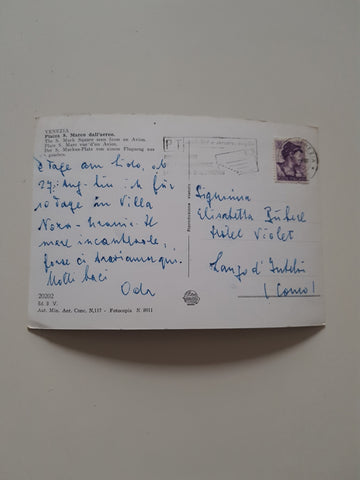 VENEZIA
Piazza S. Marco dall'aereo.
The S. Mark Square seen from an Avion.
Place S. Marc vue d'un Avion.
Der S. Markus-Platz von einem Flugzeug aus
gesehen.
Tage am Lido, ab
27. Aug. bin ich für
10 Tage in Villa
Il
mare incantevole,
forse ci troviamo qui.
Molti baci
20202
Ed. S. V.
Aut. Min. Aer. Conc. N,117 - Fotocopia N 9911
Signorina
Elisabetta
Hotel Violet
Lanzo d'Intelvi
(Como)